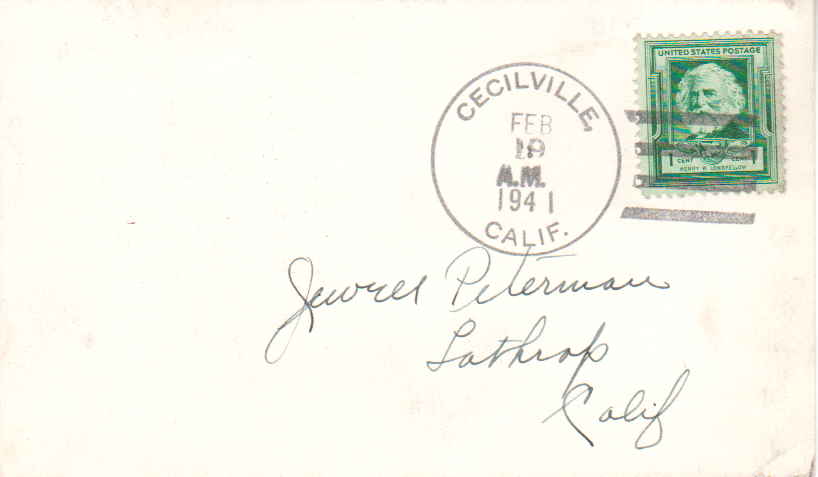 UNITED STATES POSTAGE
1 CENT CENT 1
HENRY W. LONGFELLOW
CECILVILLE,
FEB
19
A.M.
1941
CALIF.
Jewell Peterman
Lathrop
Calif